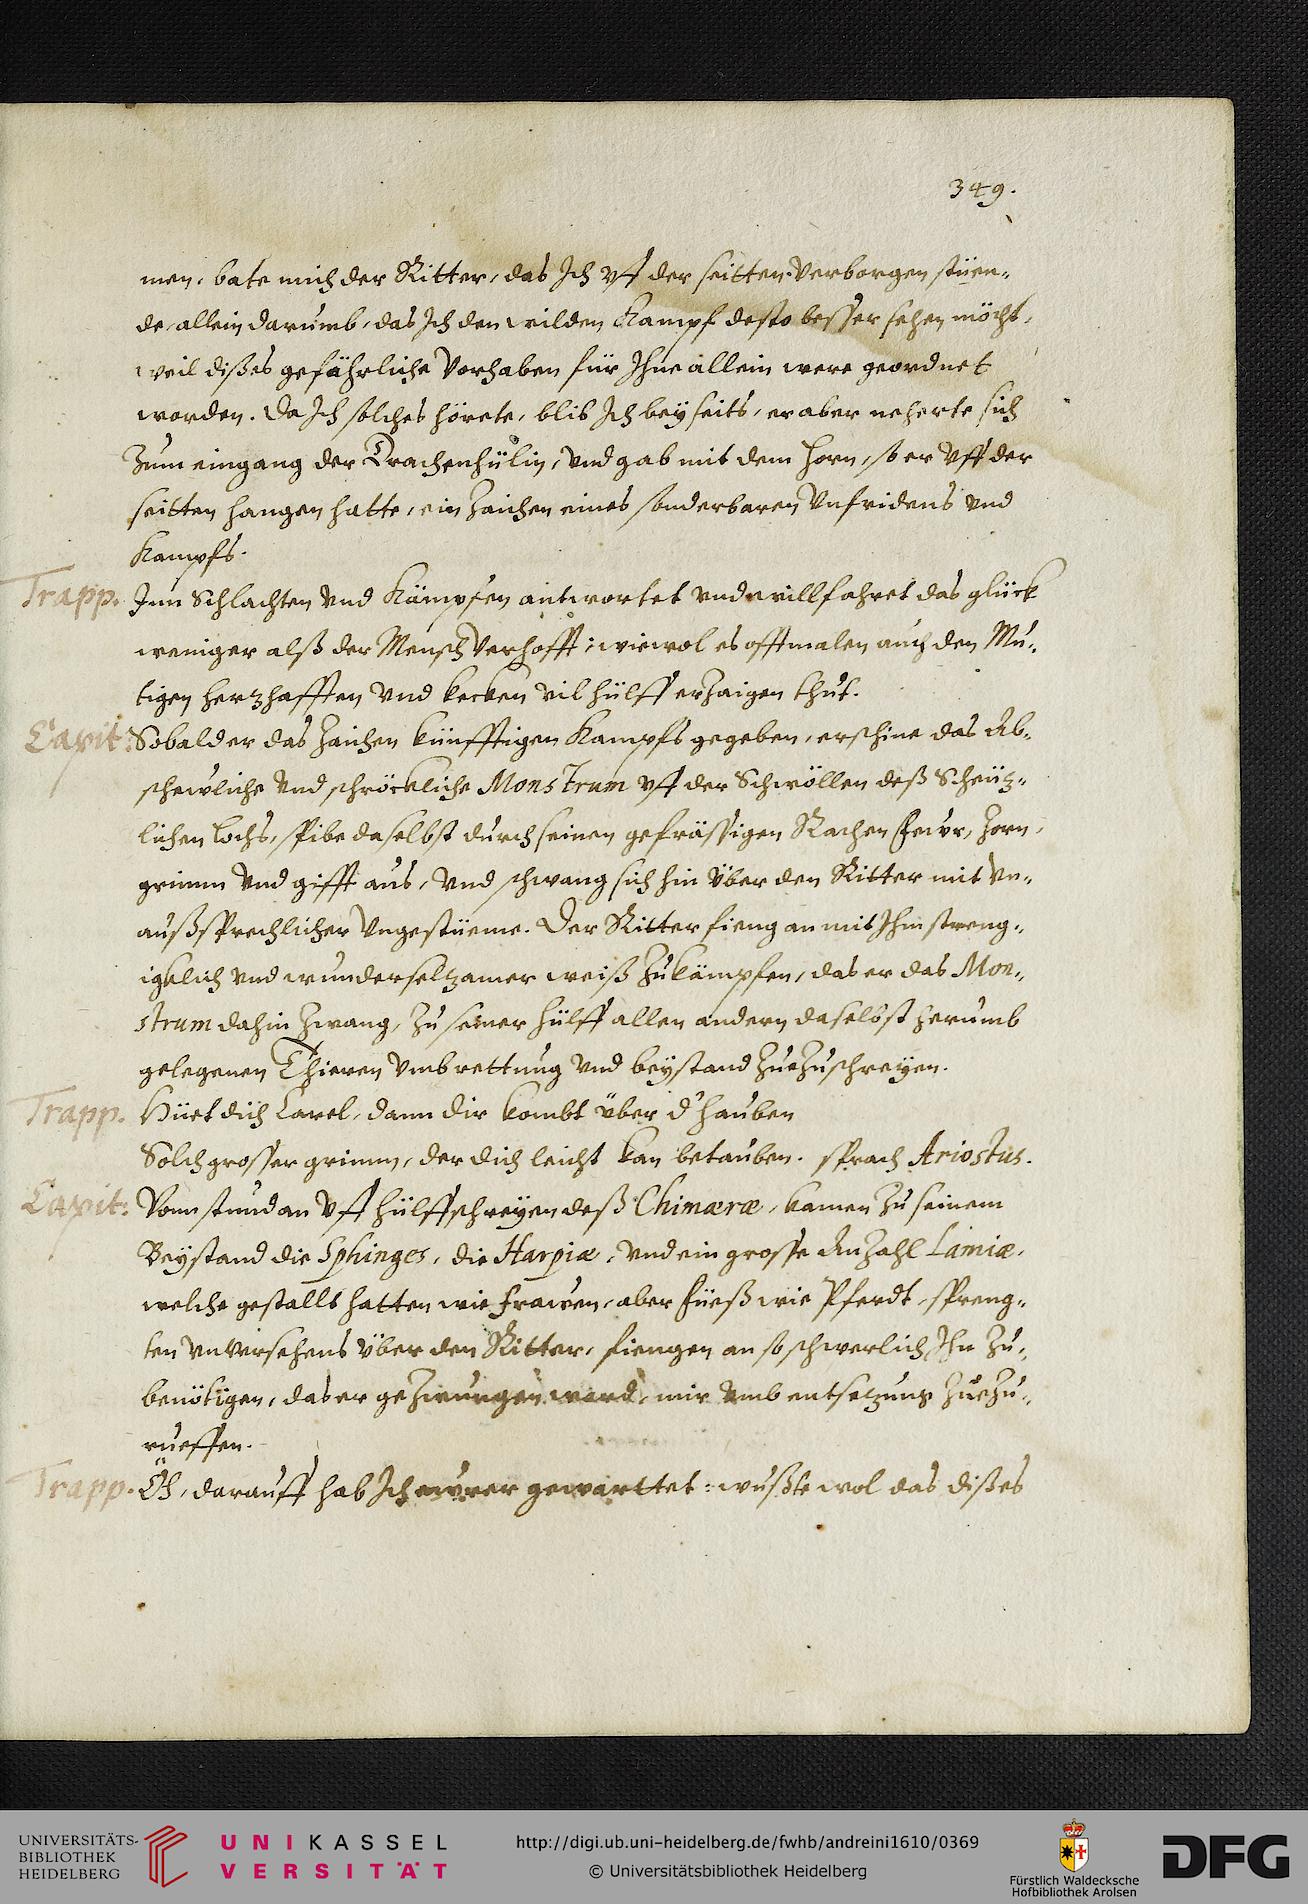 349.
men, bate mich der Ritter, das Ich vff der seitten verborgen stüen-
de, allein darumb, das Ich den wilden Kampf desto besser sehen möcht,
weil dißes gefährliche Vorhaben für Ihne allein were geordnet
worden. Da Ich solches hörete, blib Ich beyseits, er aber neherte sich
zum eingang der Drachenhülin, vnd gab mit dem Horn, so er vff der
seitten hangen hatte, ein Zaichen eines sonderbaren Vnfridens vnd
Kampfs.
Trapp. Inn Schlachten vnd Kämpfen antwortet vnd willfahret das glück
weniger alß der Mensch verhofft: wiewol es offtmalen auch den Mu-
tigen herzhafften vnd kecken vil hülff erzaigen thut.
Capit: Sobald er das Zaichen künfftigen Kampfs gegeben, erschine das Ab-
schewliche vnd schröckliche Monstrum vff der Schwöllen deß Scheütz-
lichen lochs, spibe daselbst durch seinen gefrässigen Rachen Fewr, Zorn,
grimm vnd gifft aus, vnd schwang sich hin über den Ritter mit vn-
außsprechlicher Vngestüeme. Der Ritter fieng an mit Ihm streng-
igklich vnd wunderseltzamer weiß zukämpfen, das er das Mon-
strum dahin zwang, zu seiner hülff allen andern daselbst herumb
gelegenen Thieren vmb rettung vnd beystand zuezuschreyen.
Trapp. Hüet dich Carel, dann dir kombt über d'hauben
Solch grosser grimm, der dich leicht kan betauben. sprach Ariostus.
Capit: Vonn stund an vff hülffschreyen deß Chimæræ, kamen zu seinem
Beystand die Sphinges, die Harpiæ, vnd ein grosse Anzahl Lamiæ,
welche gestallt hatten wie Frawen, aber Füeß wie Pferdt, spreng-
ten vnversehens über den Ritter, fiengen an so schwerlich Ihn zu-
benötigen, das er gezwungen ward, mir vmb entsetzung zuezu-
rueffen.
Trapp. Öh, darauff hab Ich ewrer gewarttet: wußte wol das dißes
UNIVERSITÄTS-
BIBLIOTHEK
HEIDELBERG
UNIKASSEL
VERSITÄT
http://digi.ub.uni-heidelberg.de/fwhb/andreini1610/0369
© Universitätsbibliothek Heidelberg
Fürstlich Waldecksche
Hofbibliothek Arolsen
DFG